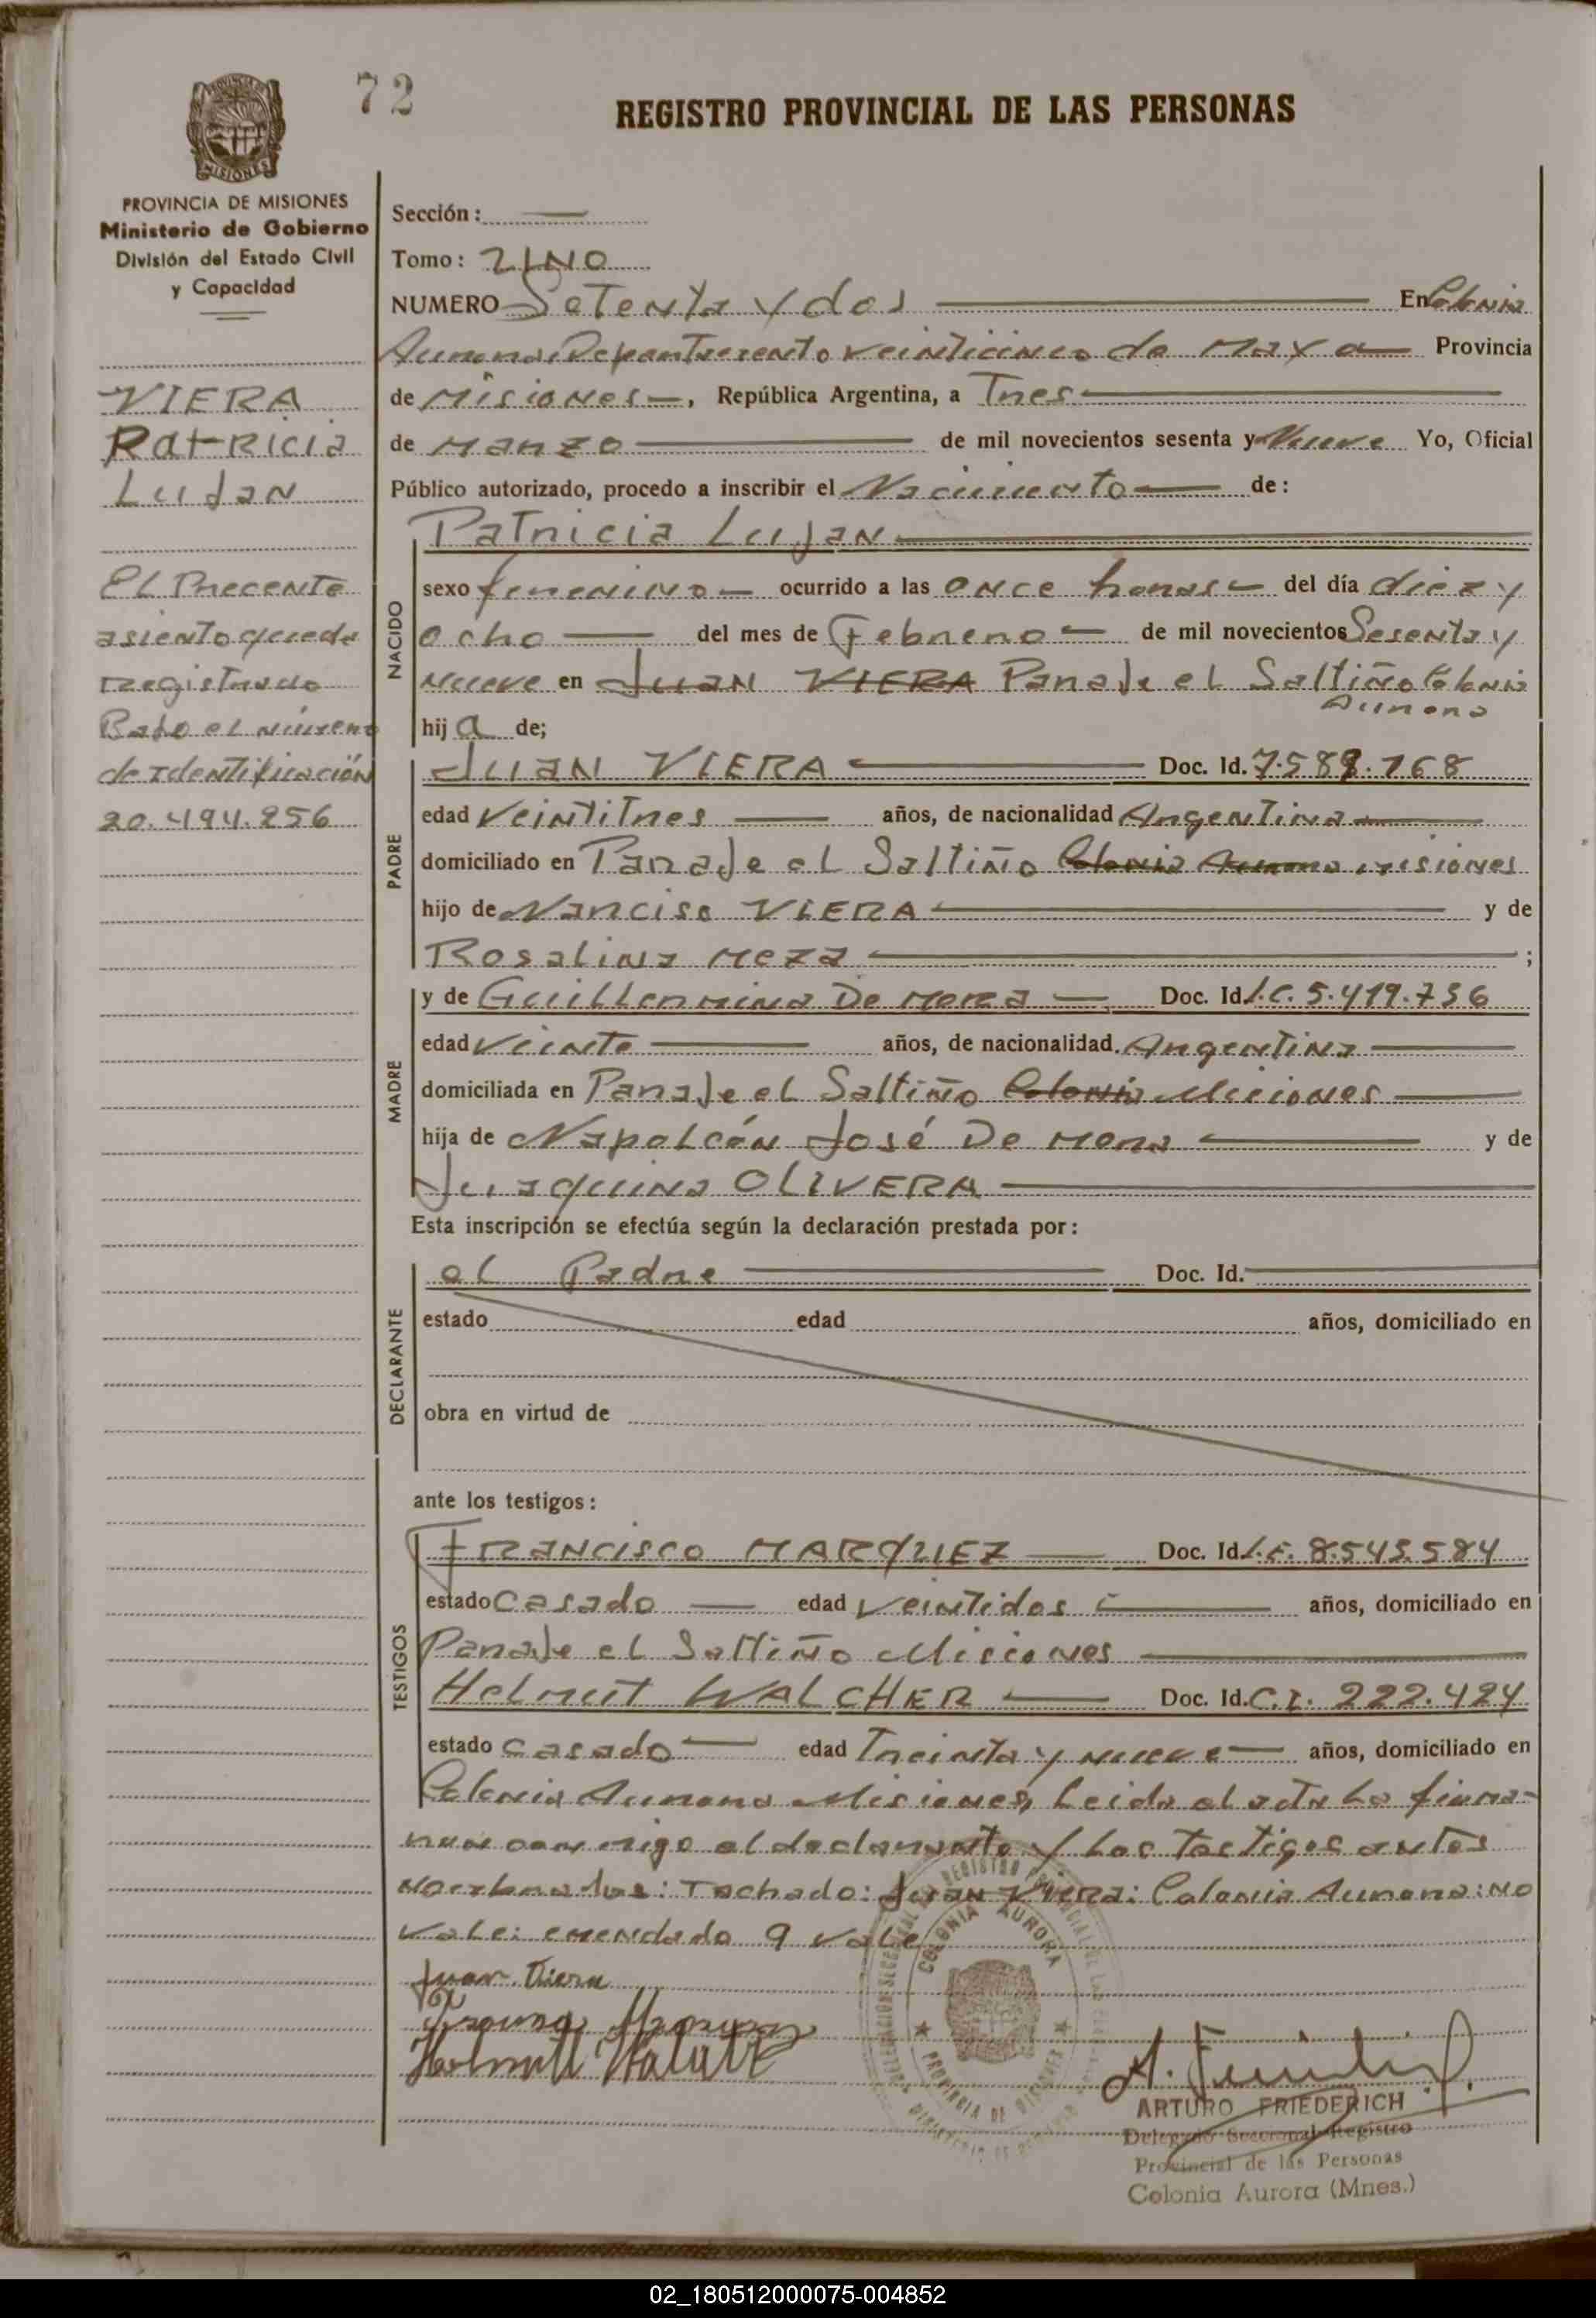 72
REGISTRO PROVINCIAL DE LAS PERSONAS
PROVINCIA DE MISIONES
Ministerio de Gobierno
División del Estado Civil
y Capacidad
VIERA
Patricia
Lujan
El Precente
asiento queda
registrado
Bajo el número
de identificación
20.494.256
Sección: —
Tomo: UNO
NUMERO Setenta y dos — En Colonia
Aurora Departamento veinticinco de Mayo — Provincia
de Misiones —, República Argentina, a Tres —
de Marzo — de mil novecientos sesenta y Nueve Yo, Oficial
Público autorizado, procedo a inscribir el Nacimiento — de:
NACIDO
Patricia Lujan —
sexo femenino — ocurrido a las once horas — del día diez y
ocho — del mes de Febrero — de mil novecientos Sesenta y
Nueve en Juan VIERA Paraje el Saltiño Colonia
Aurora
hija de;
PADRE
Juan VIERA — Doc. Id. 7.589.168
edad veintitres — años, de nacionalidad Argentina —
domiciliado en Paraje el Saltiño Colonia Aurora misiones
hijo de Narciso VIERA — y de
Rosalina Meza — ;
MADRE
y de Guillermina De Mora — Doc. Id L.C. 5.419.736
edad Veinte — años, de nacionalidad Argentina —
domiciliada en Paraje el Saltiño Colonia Misiones —
hija de Napoleón José De Mora — y de
Juaquina OLIVERA —
Esta inscripción se efectúa según la declaración prestada por:
DECLARANTE
el Padre — Doc. Id. —
estado edad años, domiciliado en
obra en virtud de
ante los testigos:
TESTIGOS
Francisco MARQUEZ — Doc. Id L.E. 8.543.584
estado Casado — edad veintidos — años, domiciliado en
Paraje el Saltiño Misiones —
Helmut WALCHER — Doc. Id. C.I. 222.424
estado Casado — edad Treinta y nueve — años, domiciliado en
Colonia Aurora Misiones, Leida el acta la firma-
ron conmigo el declarante y los testigos antes
nombrados: Tachado: Juan Viera: Colonia Aurora: NO
vale: emendado 9 vale
Juan Viera
COLONIA AURORA
PROVINCIA DE MISIONES
ARTURO FRIEDERICH
Delegado Seccional Registro
Provincial de las Personas
Colonia Aurora (Mnes.)
02_180512000075-004852